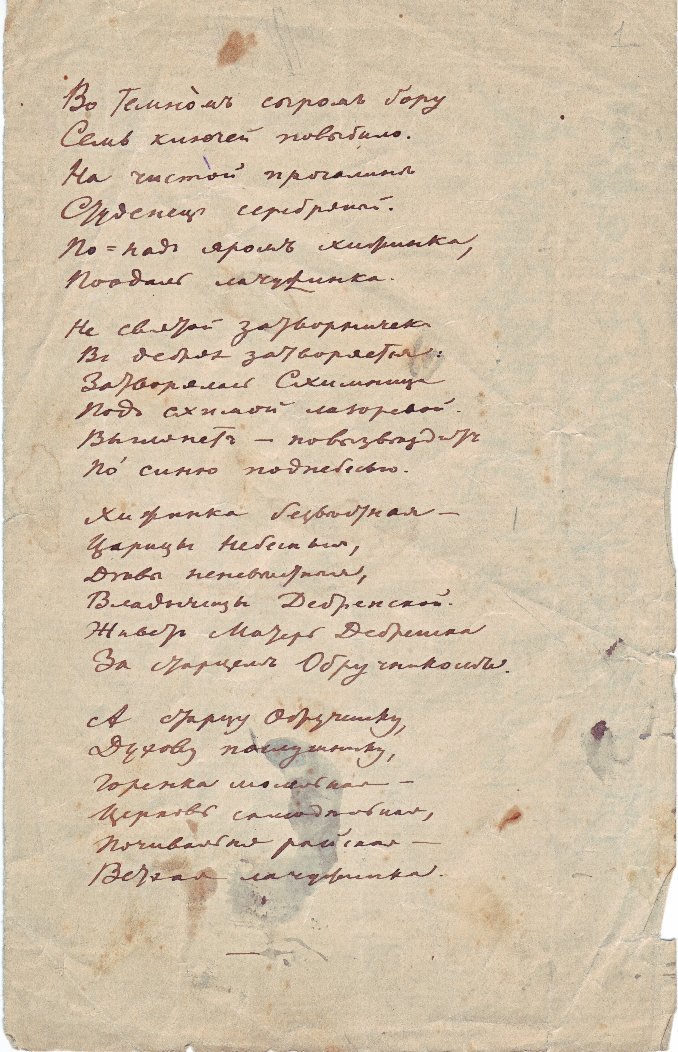 1
Во темномъ сыромъ бору
Семь ключей повыбило.
На чистой прогалинѣ
Студенецъ серебряный.
По=надъ яромъ хижинка,
Поодаль лачужинка.
Не святой затворничекъ
Въ дебряхъ затворяется:
Затворялась Схимница
Подъ схимой лазоревой.
Выглянетъ – повызвѣздитъ
По синю поднебесью.
Хижинка безвѣстная –
Царицы Небесныя,
Дѣвы неневѣстныя,
Владычицы Дебренской.
Живетъ Матерь Дебренска
За старцемъ Обручникомъ.
А старцу Обручнику,
Духову послушнику,
Горенка молебная –
Церковь самодѣльная,
Почивальня райская –
Ветхая лачужинка.